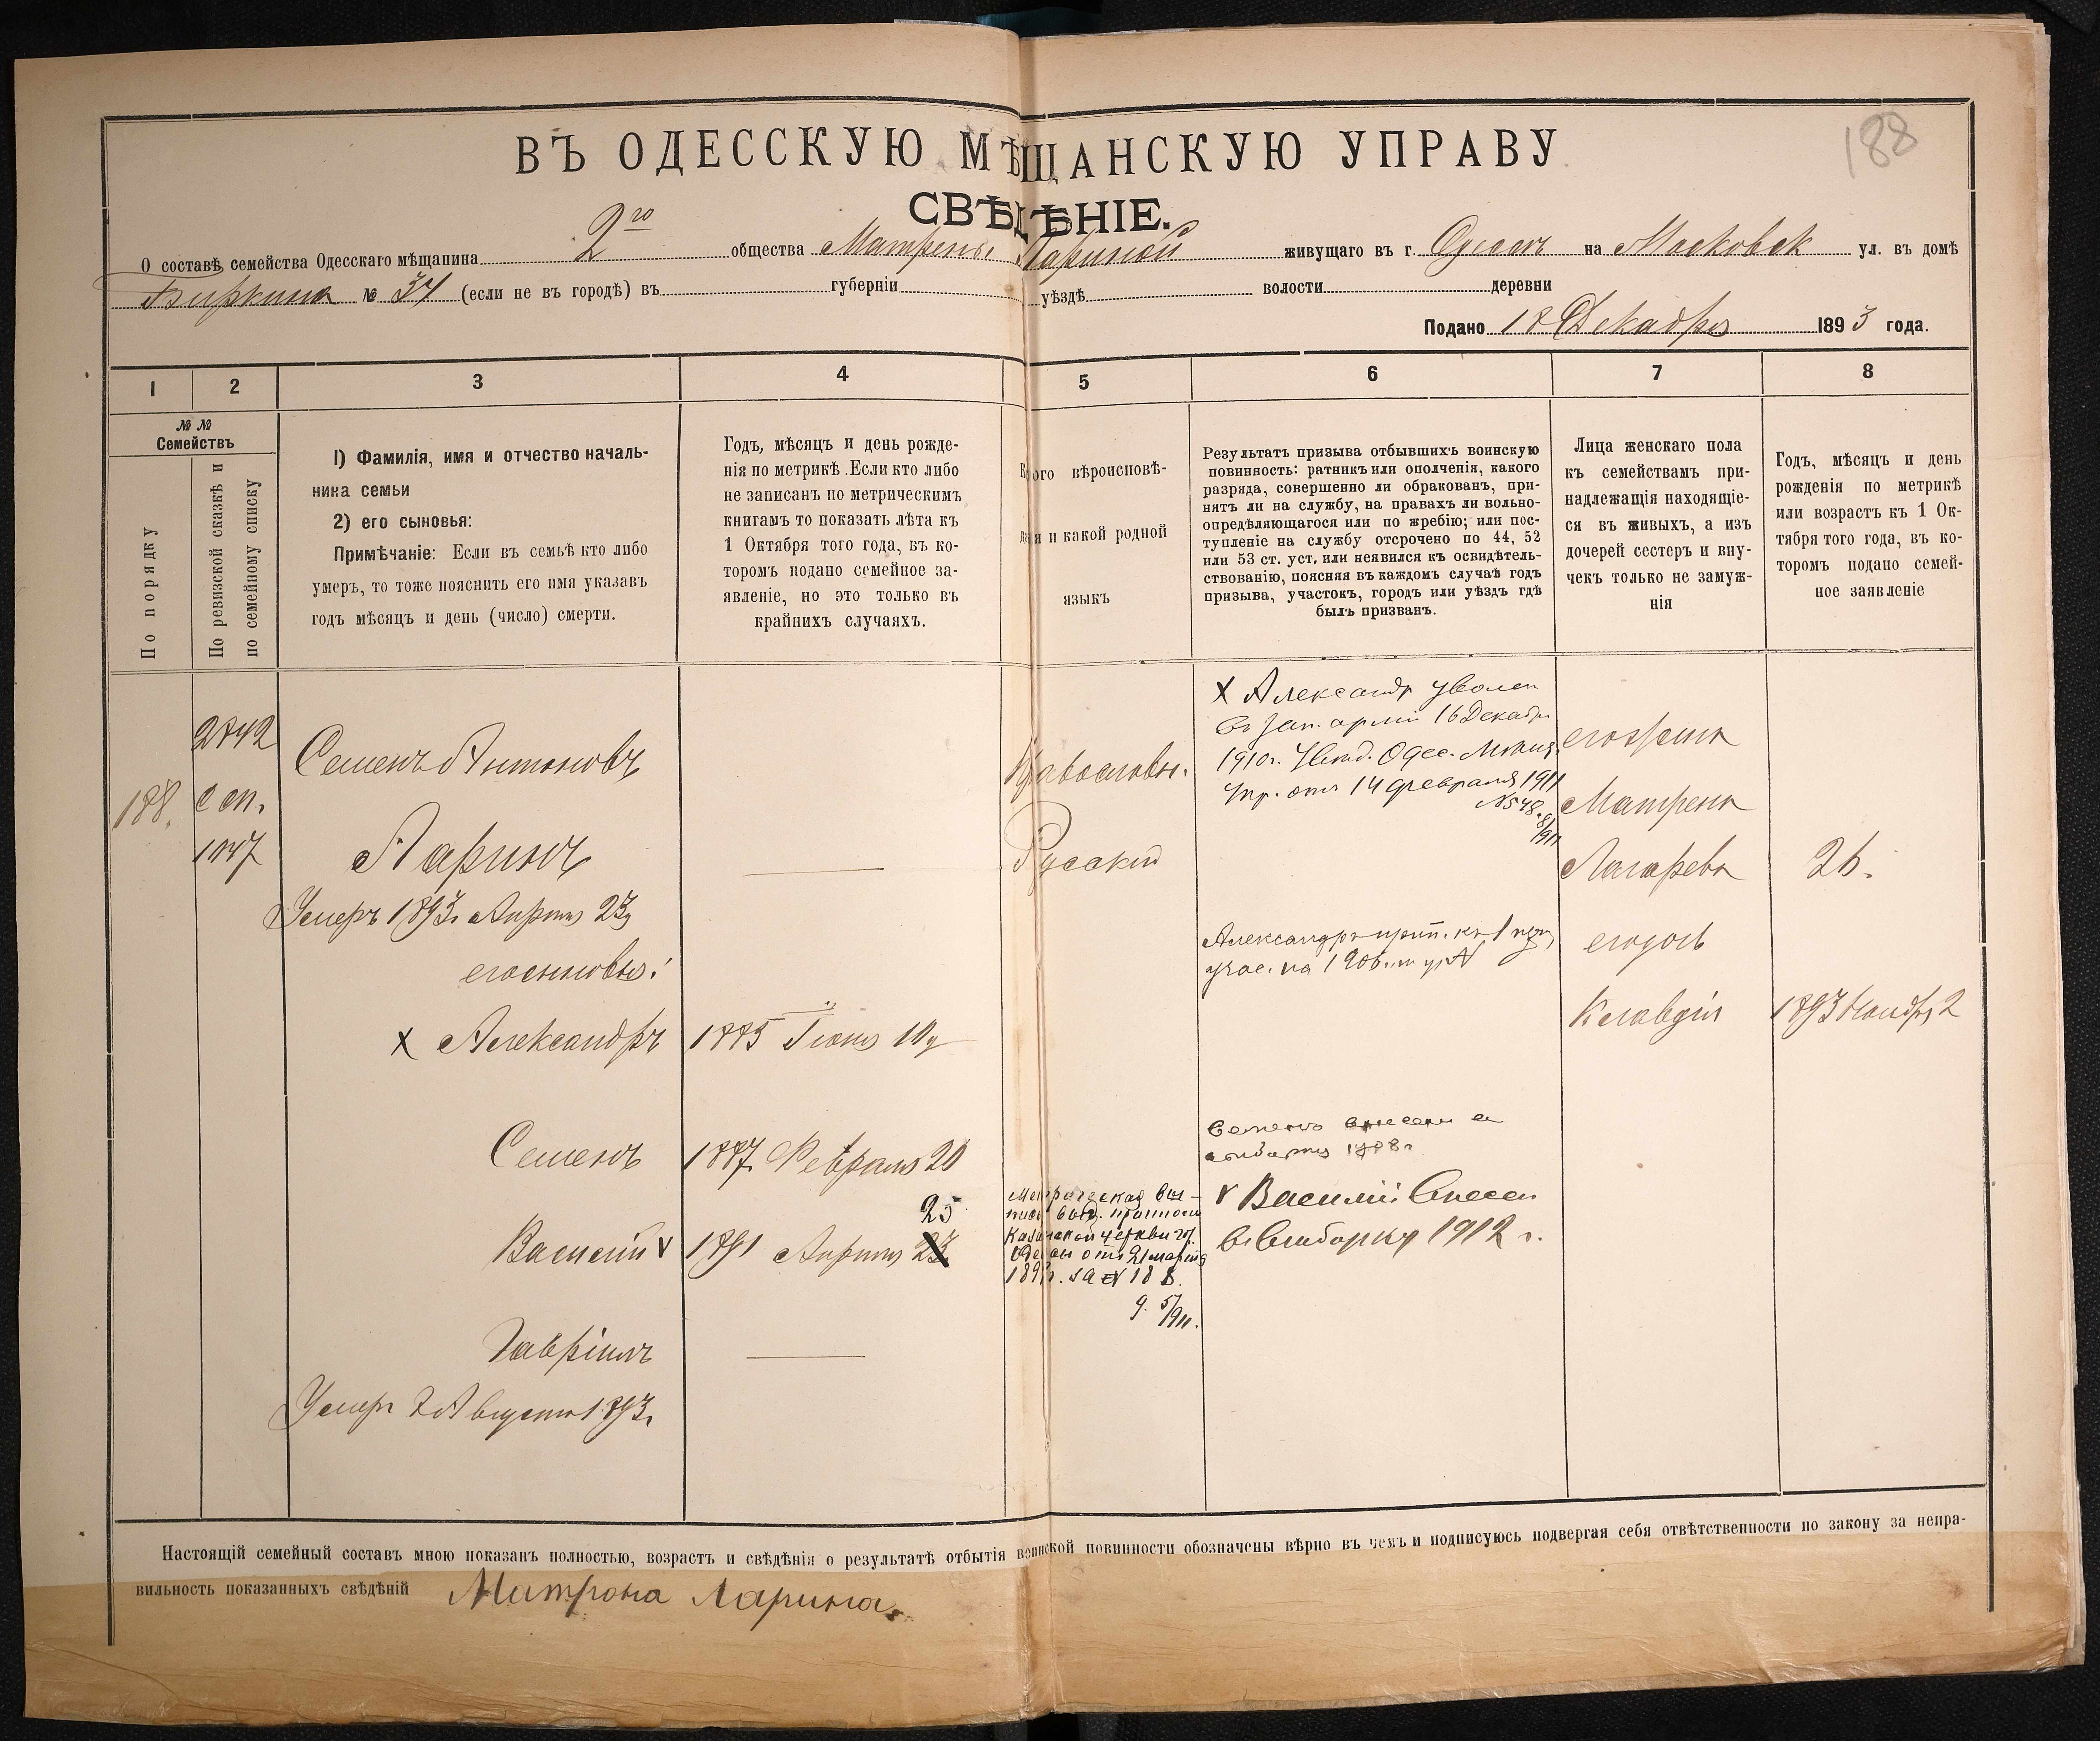 188
ВЪ ОДЕССКУЮ МѢЩАНСКУЮ УПРАВУ
СВѢДѢНІЕ.
О составѣ семейства Одесскаго мѣщанина 2го общества Матрены Лариной живущаго въ г. Одессѣ на Московск ул. въ домѣ
№ 34 (если не въ городѣ) въ губерніи уѣздѣ волости деревни
Подано 18 Декабря 1893 года.
1 2 3 4 5 6 7 8
№ №
Семействъ
По порядку
По ревизской сказкѣ и
по семейному списку
1) Фамилія, имя и отчество началь-
ника семьи
2) его сыновья:
Примѣчаніе: Если въ семьѣ кто либо
умеръ, то тоже пояснить его имя указавъ
годъ мѣсяцъ и день (число) смерти.
Годъ, мѣсяцъ и день рожде-
нія по метрикѣ. Если кто либо
не записанъ по метрическимъ
книгамъ то показать лѣта къ
1 Октября того года, въ ко-
торомъ подано семейное за-
явленіе, но это только въ
крайнихъ случаяхъ.
вѣроисповѣ-
и какой родной
языкъ
Результатъ призыва отбывшихъ воинскую
повинность: ратникъ или ополченія, какого
разряда, совершенно ли обракованъ, при-
нятъ ли на службу, на правахъ ли вольно-
опредѣляющагося или по жребію; или пос-
тупленіе на службу отсрочено по 44, 52
или 53 ст. уст, или неявился къ освидѣтель-
ствованію, поясняя въ каждомъ случаѣ годъ
призыва, участокъ, городъ или уѣздъ гдѣ
былъ призванъ.
Лица женскаго пола
къ семействамъ при-
надлежащія находящіе-
ся въ живыхъ, а изъ
дочерей сестеръ и вну-
чекъ только не замуж-
нія
Годъ, мѣсяцъ и день
рожденія по метрикѣ
или возрастъ къ 1 Ок-
тября того года, въ ко-
торомъ подано семей-
ное заявленіе
188.
2842
Семенъ Антоновъ
Ларинъ
Умеръ 1893г. Апрѣля 23
его сыновья:
х Александръ
1885 Іюня 10
Семенъ
1887 Февраля 20
Василій v
1891 Апрѣля 25
Гавріилъ
Умеръ Августа 1893г.
Православн.
Русскій
Метрическая вы-
Казанской церкви гор.
Одессы отъ 21 марта
за № 188.
х Александр уволен
в зап. арміи 16 Декабр
1910г. Увед. Одес. Мѣщ.
Упр. отъ 14 февраля 1911
№548.
Александръ прип. къ 1 приз
учас. на 1906
1908г
v Василій внесен
в выборку 1912 г.
его жена
Матрена
Лазарева
26.
его дочь
Клавдія
1893 Ноября 2
Настоящій семейный составъ мною показанъ полностью, возрастъ и свѣдѣнія о результатѣ отбытія воинской повинности обозначены вѣрно въ чемъ и подписуюсь подвергая себя отвѣтственности по закону за непра-
вильность показанныхъ свѣдѣній Матрона Ларина.